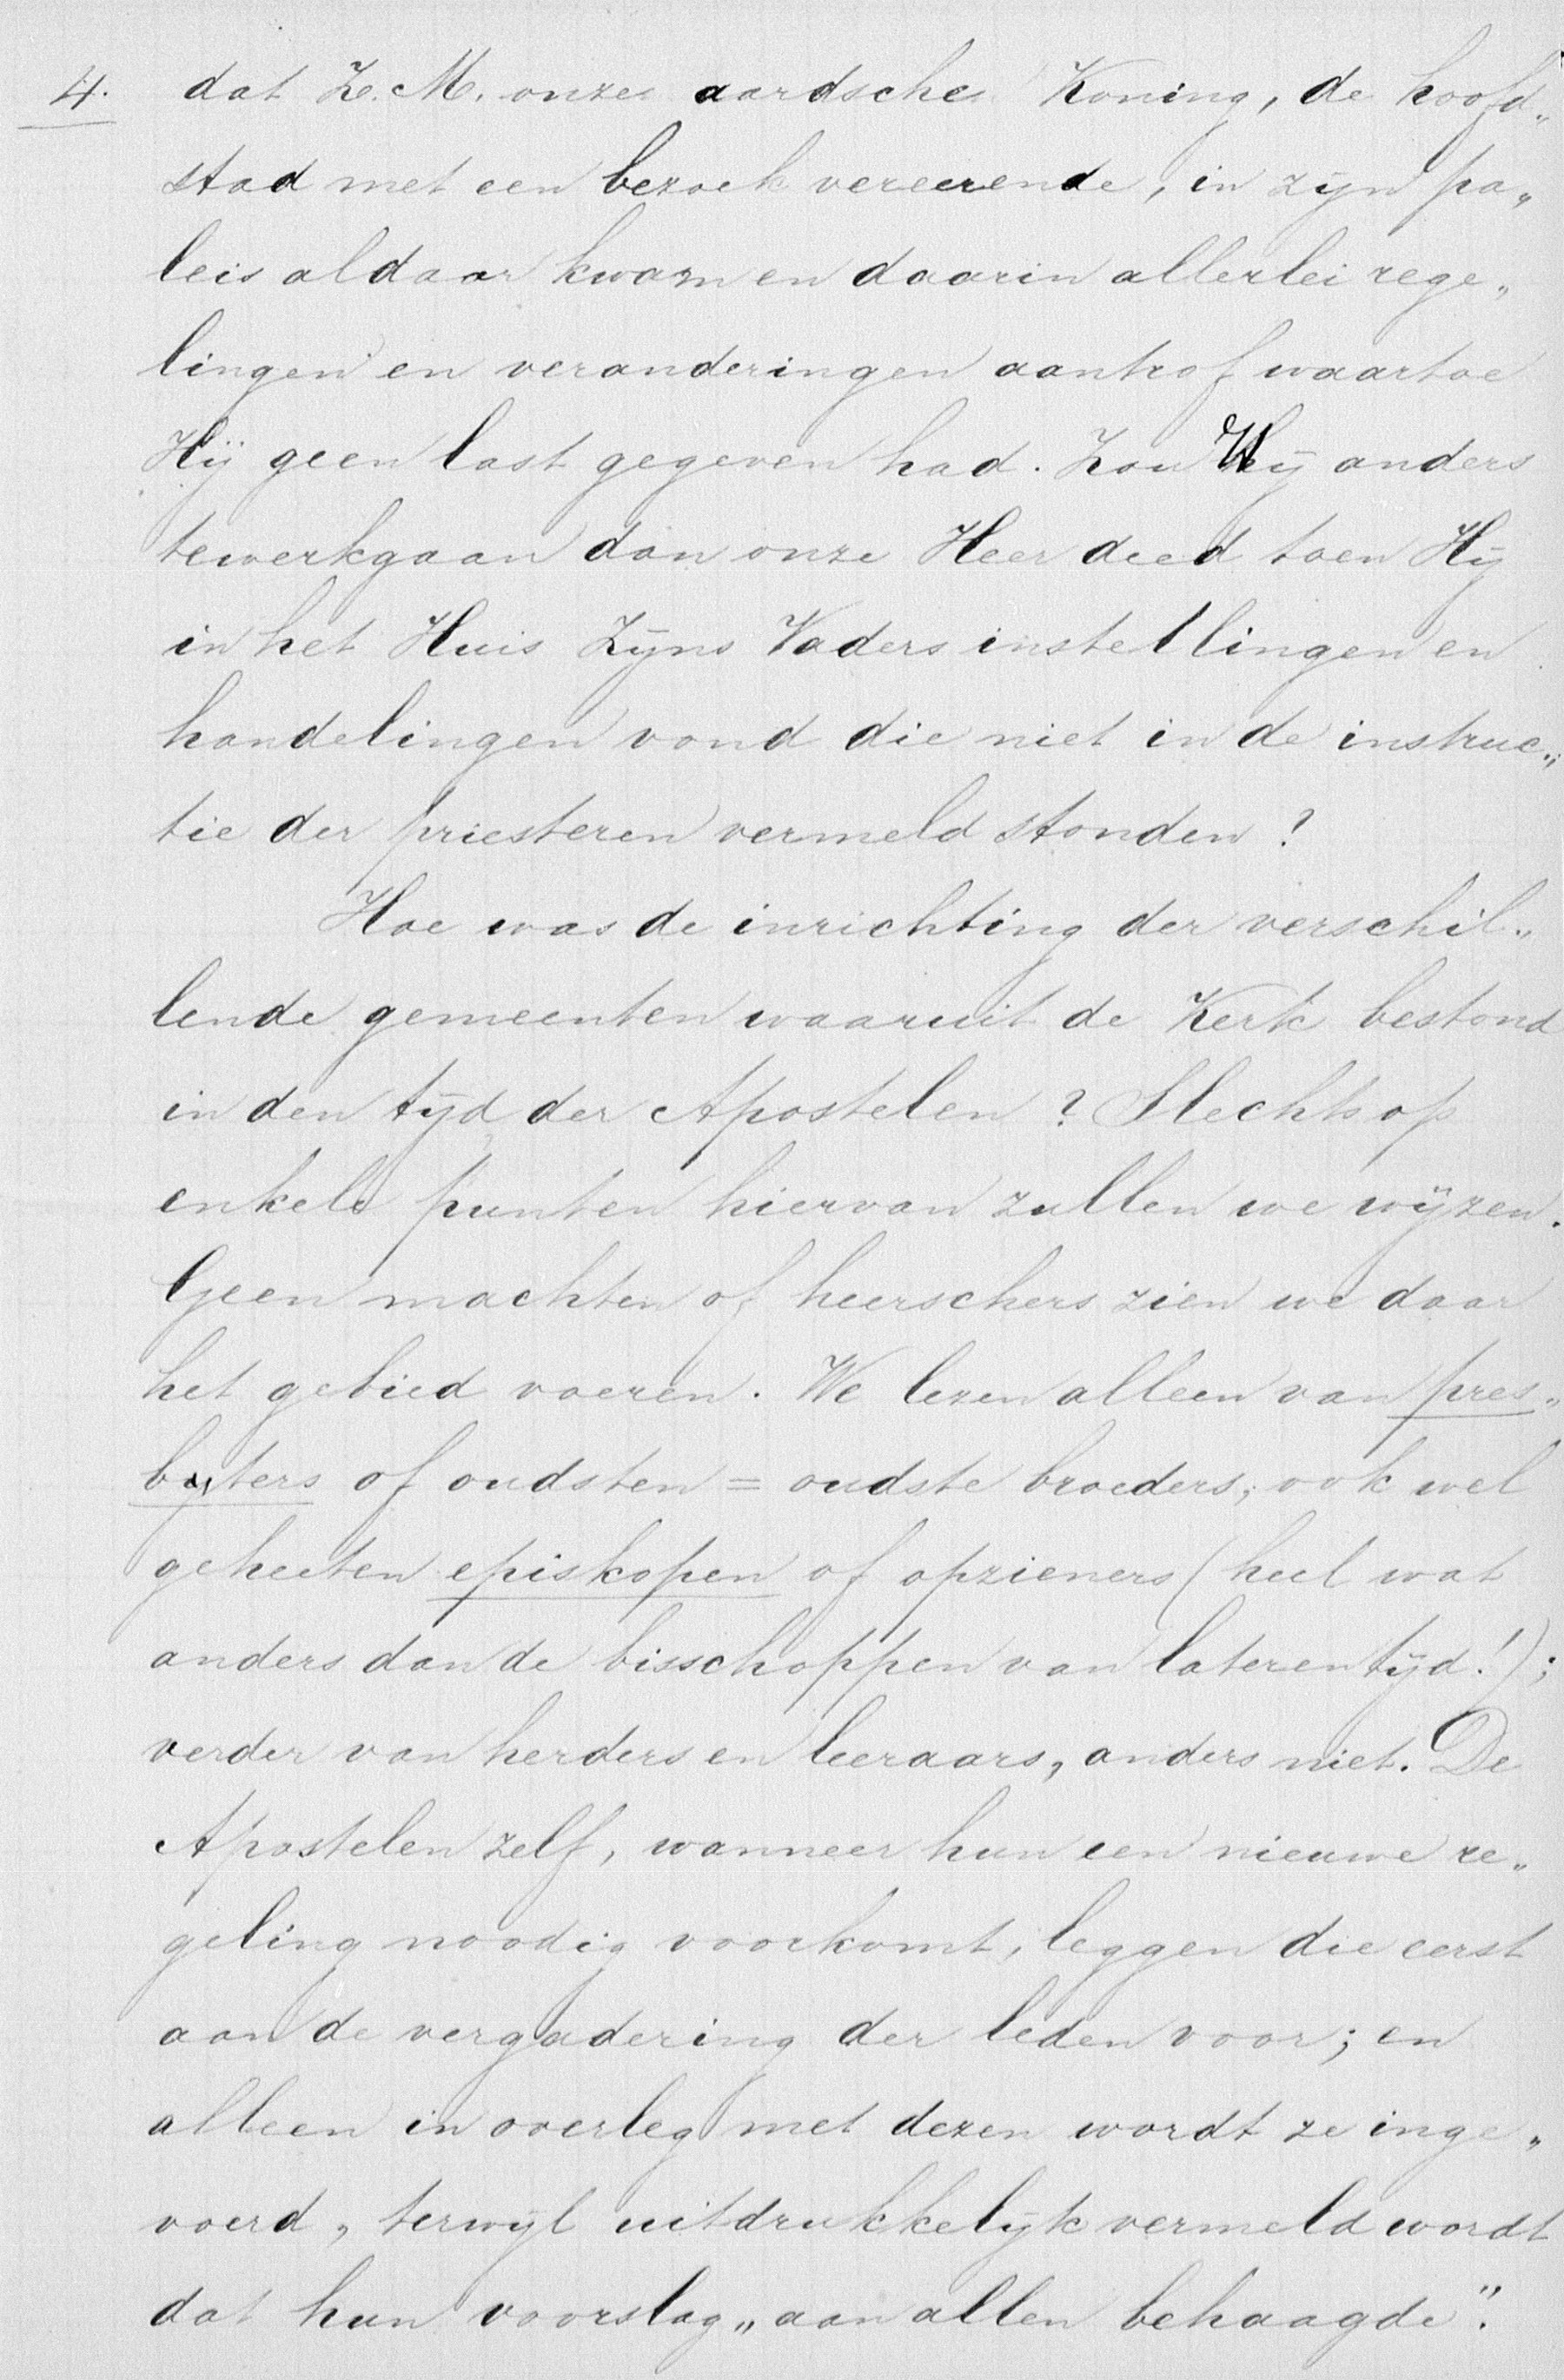 4. dat Z. M. onze aardsche Koning, de hoofd„
stad met een bezoek vereerende, in zijn pa„
leis aldaar kwam en daarin allerlei rege„
lingen en veranderingen aantrof waartoe
Hij geen last gegeven had. Zou Hij anders
tewerkgaan dan onze Heer deed toen Hij
in het Huis Zijns Vaders instellingen en
handelingen vond die niet in de instruc„
tie der priesteren vermeld stonden?
Hoe was de inrichting der verschil„
lende gemeenten waaruit de Kerk bestond
in den tijd der Apostelen? Slechts op
enkele punten hiervan zullen we wijzen.
Geen machten of heerschers zien we daar
het gebied voeren. We lezen alleen van pres„
byters of oudsten = oudste broeders, ook wel
geheeten episkopen of opzieners (heel wat
anders dan de bisschoppen van lateren tijd!);
verder van herders en leeraars, anders niet. De
Apostelen zelf, wanneer hun een nieuwe re„
geling noodig voorkomt, leggen die eerst
aan de vergadering der leden voor; en
alleen in overleg met dezen wordt ze inge„
voerd, terwijl uitdrukkelijk vermeld wordt
dat hun voorslag „aan allen behaagde".